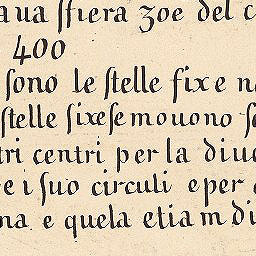 aua ſfiera zoe del c
400
ſono le ſtelle fixe n
ſtelle fixe ſe mouono ſe
tri centri per la diue
e i ſuo circuli e per
na e quela etiam di